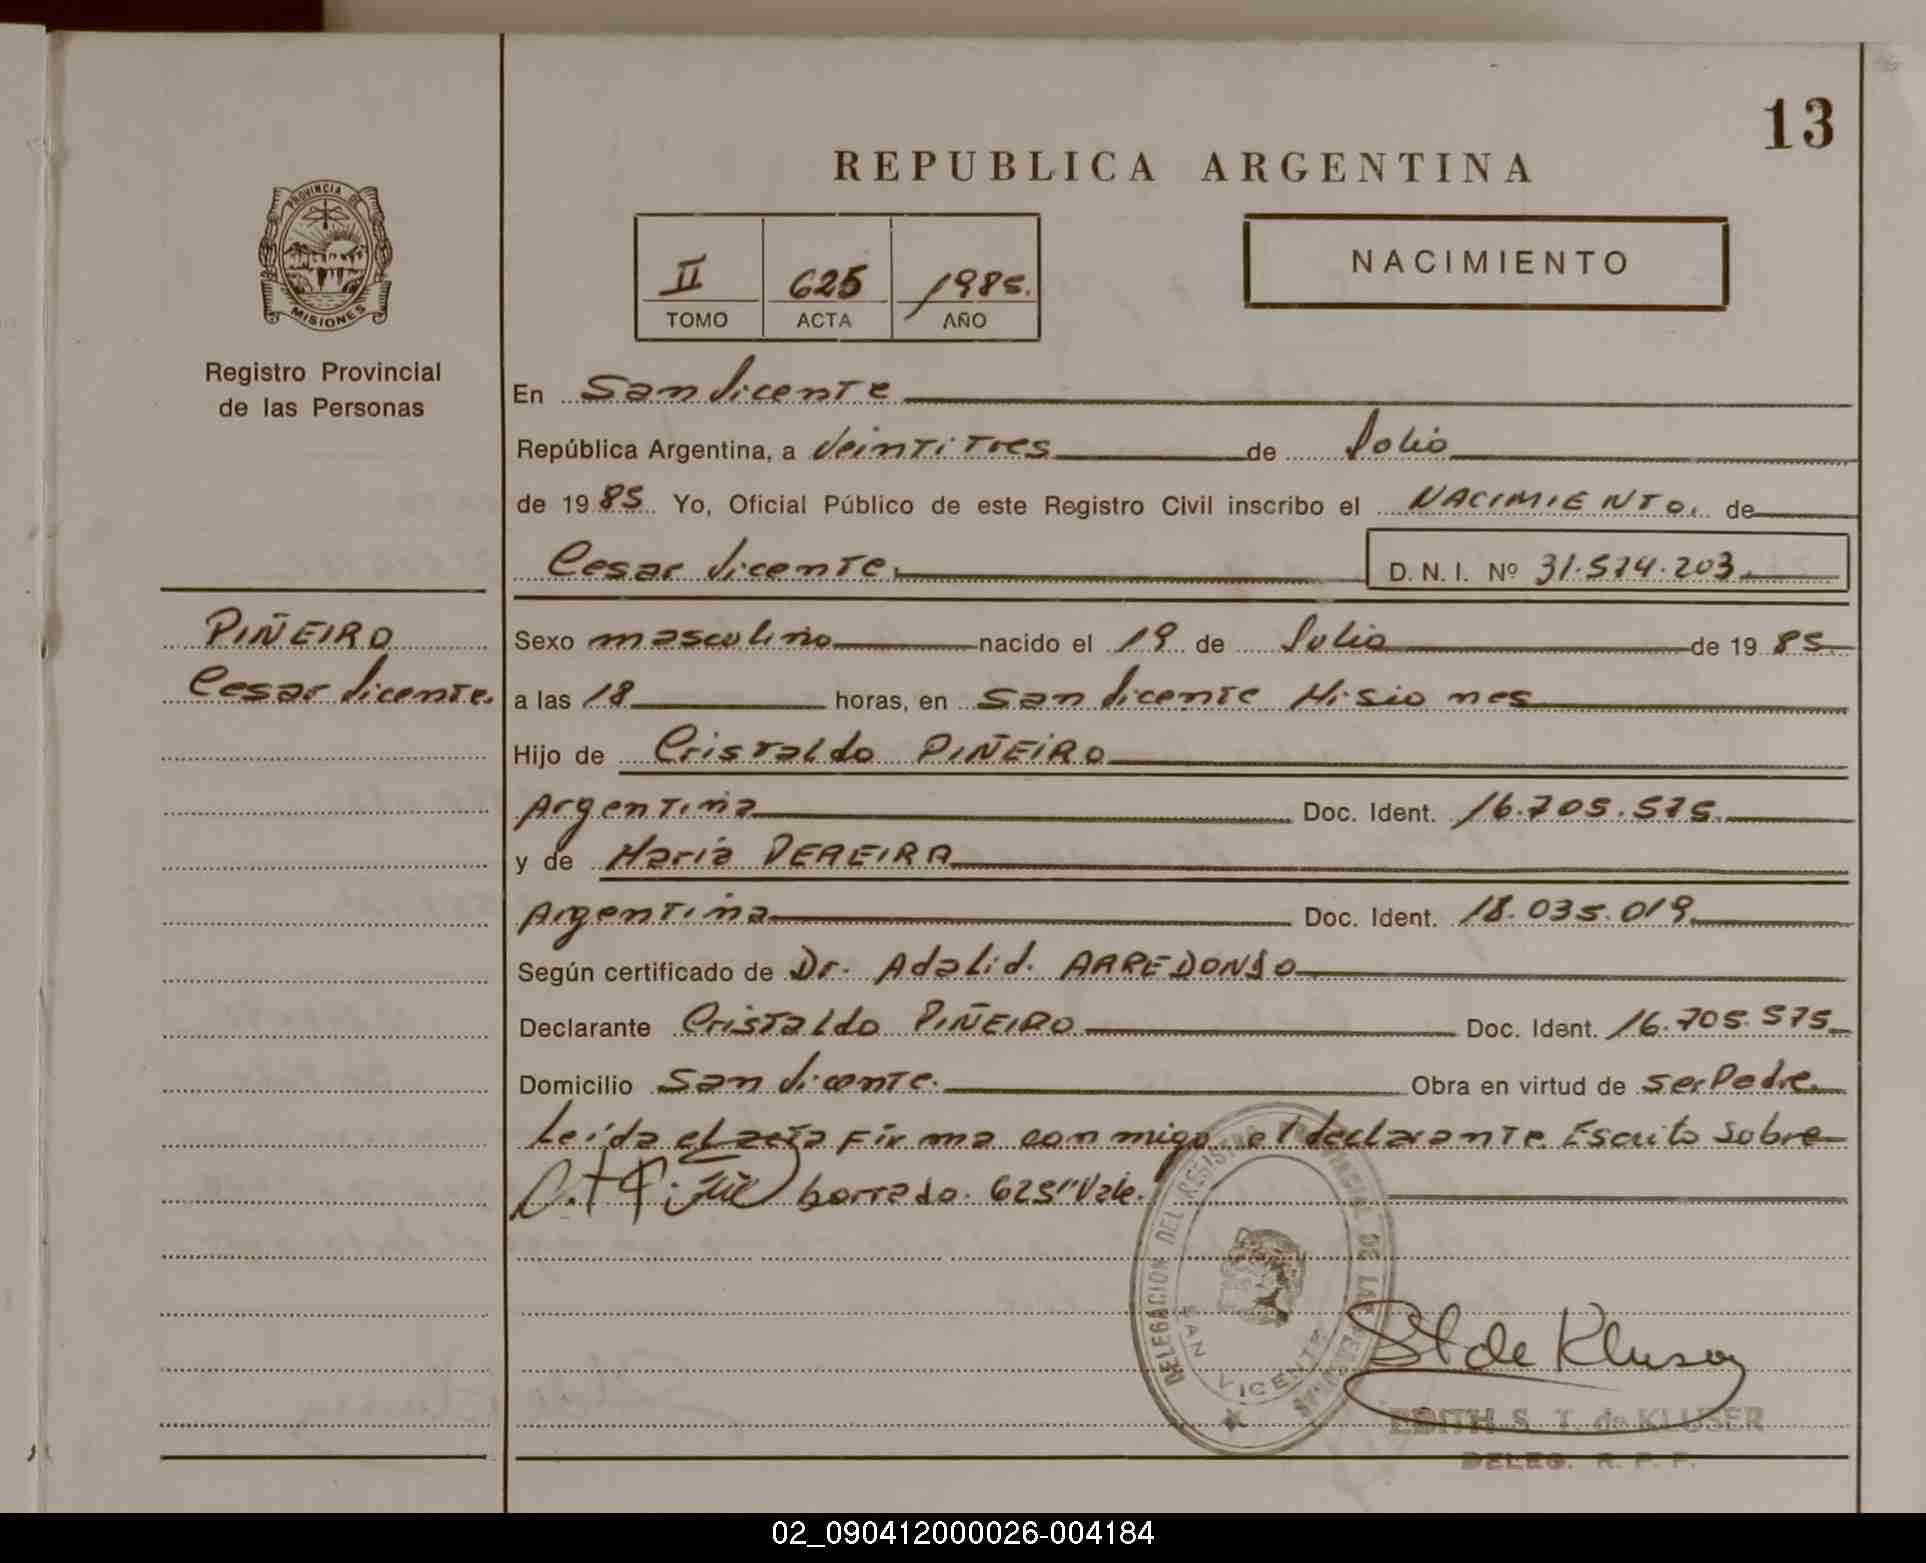 13
REPUBLICA ARGENTINA
PROVINCIA DE
MISIONES
Registro Provincial
de las Personas
II 625 1985.
TOMO ACTA AÑO
NACIMIENTO
En San Vicente
República Argentina, a Veintitres de Julio
de 1985 Yo, Oficial Público de este Registro Civil inscribo el NACIMIENTO. de
Cesar Vicente. D. N. I. Nº 31.574.203.
PIÑEIRO
Cesar Vicente.
Sexo masculino nacido el 19 de Julio de 1985
a las 18 horas, en San Vicente Misiones
Hijo de Cristaldo PIÑEIRO
Argentina Doc. Ident. 16.705.575.
y de Maria PEREIRA
Argentina Doc. Ident. 18.035.019
Según certificado de Dr. Adalid. ARREDONDO
Declarante Cristaldo PIÑEIRO Doc. Ident. 16.705.575
Domicilio San Vicente. Obra en virtud de ser Padre.
Leída el acta Firma conmigo el declarante. Escrito Sobre
borrado. 625" Vale.
DELEGACION DEL REGISTRO PROVINCIAL DE LAS PERSONAS
SAN VICENTE
St de Kluser
EDITH S. T. de KLUSER
DELEG. R. P. P.
02_090412000026-004184